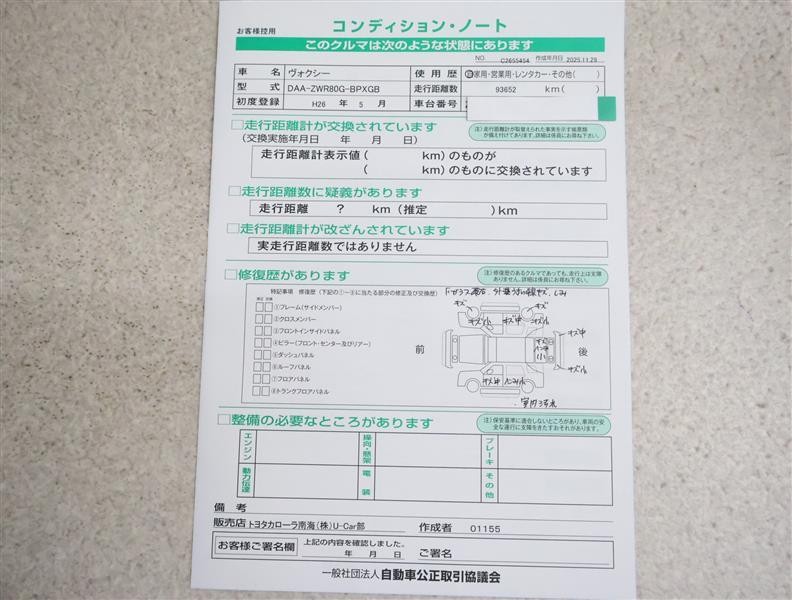 お客様控用
コンディション・ノート
このクルマは次のような状態にあります
NO. C2655454 作成年月日 2025.11.29
車名 ヴォクシー 使用歴 自家用・営業用・レンタカー・その他( )
型式 DAA-ZWR80G-BPXGB 走行距離数 93652 km( )
初度登録 H26 年 5 月 車台番号
□走行距離計が交換されています
(注)走行距離計が取替えられた事実を示す帳票類が備え付けてあります。詳細は係員にお尋ね下さい。
(交換実施年月日 年 月 日)
走行距離計表示値( km)のものが
( km)のものに交換されています
□走行距離数に疑義があります
走行距離 ? km(推定 )km
□走行距離計が改ざんされています
実走行距離数ではありません
□修復歴があります
(注)修復歴のあるクルマであっても、走行上は支障ありません。詳細は係員にお尋ね下さい。
特記事項 修復歴(下記の①〜⑧に当たる部分の修正及び交換歴)
修正 交換
①フレーム(サイドメンバー)
②クロスメンバー
③フロントインサイドパネル
④ピラー(フロント・センター及びリアー)
⑤ダッシュパネル
⑥ルーフパネル
⑦フロアパネル
⑧トランクフロアパネル
前
後
キズ キズ
キズ小 キズ中 キズ小
キズ中
キズ小
キズ中
□整備の必要なところがあります
(注)保安基準に適合しないところがあり、車両の安全な運行に支障をきたすおそれがあります。
エンジン 操向・懸架 ブレーキ
動力伝達 電装 その他
備考
販売店 トヨタカローラ南海(株)U-Car部 作成者 01155
お客様ご署名欄 上記の内容を確認しました。
年 月 日 ご署名
一般社団法人 自動車公正取引協議会